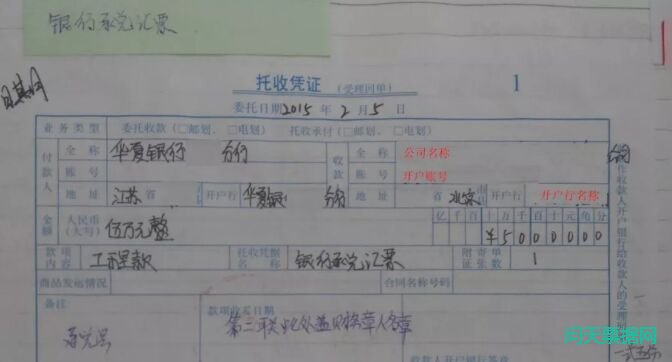 银行承兑汇票
托收凭证 (受理回单) 1
委托日期 2015 年 2 月 5 日
业务类型 委托收款 (□邮划、□电划) 托收承付 (□邮划、□电划)
付款人 全称 华夏银行 分行 收款 全称 公司名称
账号 账号 开户账号
地址 江苏省 开户行 华夏银 地址 省 北京市 开户行 开户行名称
金额 人民币(大写) 伍万元整 亿千百十万千百十元角分
¥5000000
款项内容 工程款 托收凭据名称 银行承兑汇票 附寄单证张数 1
商品发运情况 合同名称号码
备注 款项收妥日期
第三联此处盖财务章人名章
收款人开户银行签章
作收款人开户银行给收款人的受理回单
问天票据网